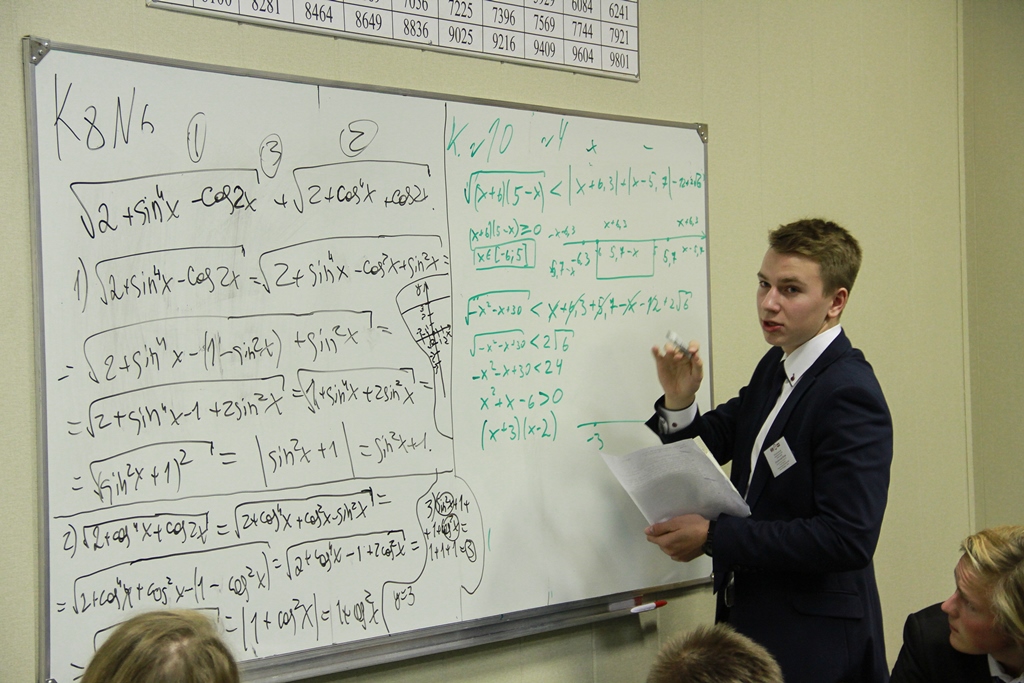 8281 8464 7056 7225 7396 6084 6241
8649 8836 7569 7744 7921
9025 9216 9409 9604 9801
K8N6
① ③ ②
√(2+sin⁴x-cos2x) + √(2+cos⁴x+cos2x).
1) √(2+sin⁴x-cos2x) = √(2+sin⁴x-cos²x+sin²x) =
= √(2+sin⁴x-(1-sin²x)+sin²x) =
= √(2+sin⁴x-1+2sin²x) = √(1+sin⁴x+2sin²x) =
= √(sin²x+1)² = |sin²x+1| = sin²x+1.
2) √(2+cos⁴x+cos2x) = √(2+cos⁴x+cos²x-sin²x) =
= √(2+cos⁴x+cos²x-(1-cos²x)) = √(2+cos⁴x-1+2cos²x) =
= |1+cos²x| = 1+cos²x
3) sin²x+1+
+1+cos²x=
1+1+1=③
y=3
K.№10 №4 + -
√((x+6)(5-x)) < |x+6,3|+|x-5,7|-12+2√6
(x+6)(5-x)≥0 -x-6,3 x+6,3 x+6,3
x∈[-6;5] 5,7-x -6,3 5,7-x 5,7 x-5,7
√(-x²-x+30) < x+6,3+5,7-x-12+2√6
√(-x²-x+30) < 2√6
-x²-x+30<24
x²+x-6>0
(x+3)(x-2) -3